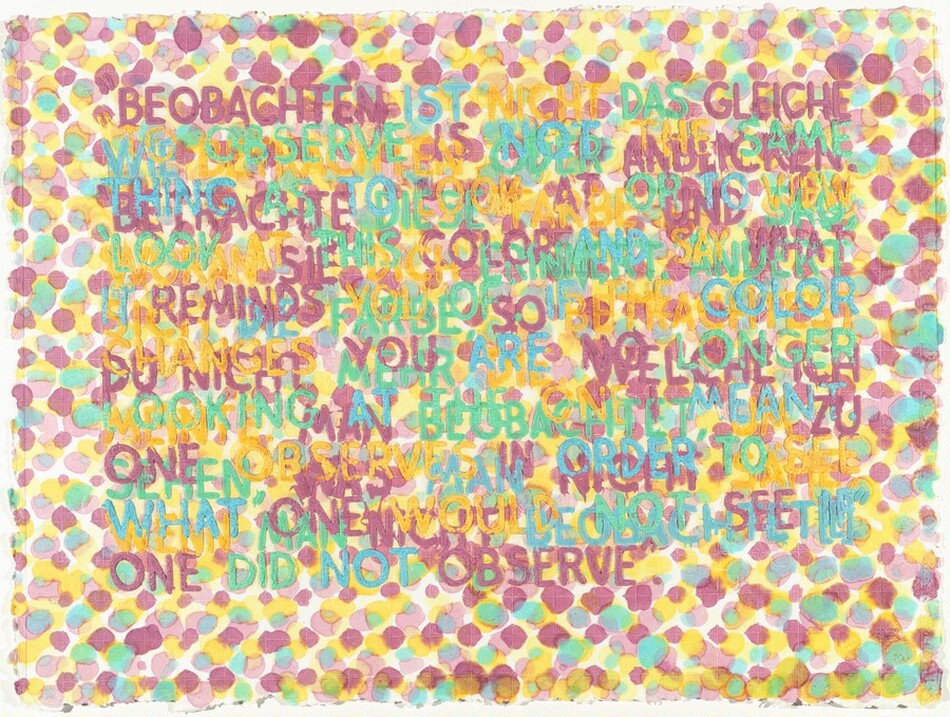 "BEOBACHTEN IST NICHT DAS GLEICHE
TO OBSERVE IS NOT THE SAME
WIE ODER ANBLICKEN.
THING AS TO LOOK AT OR TO VIEW
BETRACHTE DIESE FARBE UND SAG
'LOOK AT THIS COLOR AND SAY WHAT
WORAN SIE DICH ERINNERT. ÄNDERT
IT REMINDS YOU OF' IF THE COLOR
SICH DIE FARBE SO
CHANGES YOU ARE NO LONGER
DU NICHT MEHR DIE WELCHE ICH
LOOKING AT THE ONE I MEANT
MAN BEOBACHTET, ZU
ONE OBSERVES IN ORDER TO SEE
SEHEN, WAS MAN NICHT
WHAT ONE WOULD NOT SEE IF
MAN NICHT BEOBACHTET"
ONE DID NOT OBSERVE".